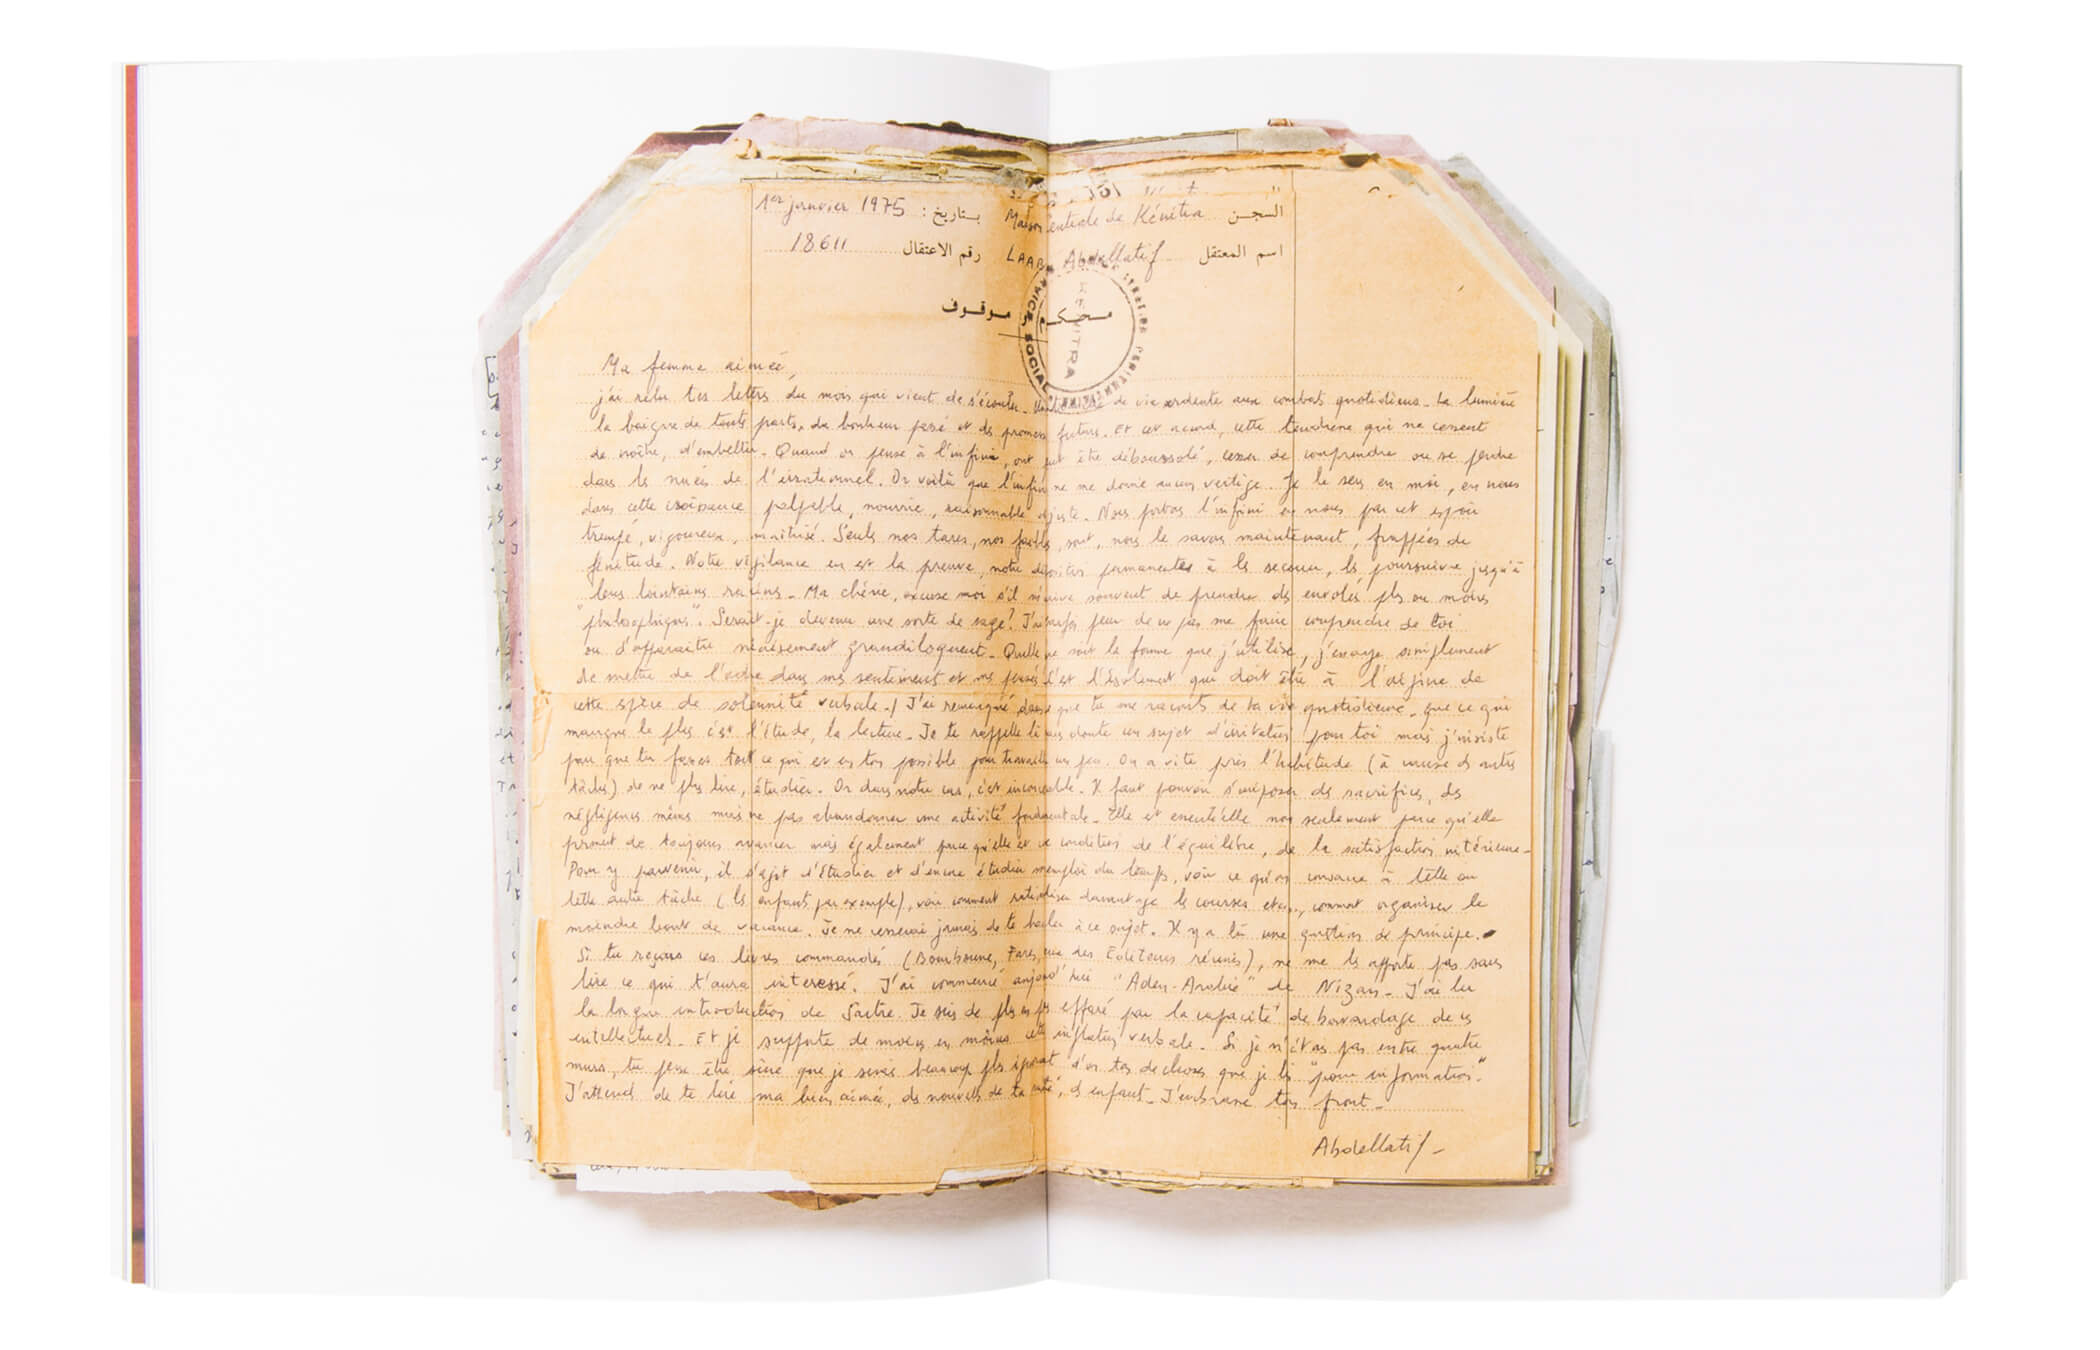 1er janvier 1975 بتاريخ : Maison Centrale de Kénitra السجن
18611 رقم الاعتقال LAABI Abdellatif اسم المعتقل
محكوم او موقوف
SERVICE SOCIAL KENITRA
Ma femme aimée,
j'ai relu tes lettres du mois qui vient de s'écouler - de vie ardente aux combats quotidiens - La lumière
la baigne de toutes parts, du bonheur passé et des promesses futures. Et cet accord, cette tendresse qui ne cessent
de croître, d'embellir - Quand on pense à l'infini, ont peut être déboussolé, cesser de comprendre ou se perdre
dans les nuées de l'irrationnel. Or voilà que l'infini ne me donne aucun vertige. Je le sens en moi, en nous
dans cette croissance palpable, nourrie, raisonnable Nous portons l'infini en nous par cet espoir
trempé, vigoureux, maîtrisé. Seuls nos tares, nos faibles, sont, nous le savons maintenant, frappées de
finitude. Notre vigilance en est la preuve, notre permanentes à les secouer, les poursuivre jusqu'à
leurs lointaines racines - Ma chérie, excuse moi s'il m'arrive souvent de prendre des envolées plus ou moins
"philosophiques". Serait-je devenu une sorte de sage? J'ai parfois peur de ne pas me faire comprendre de toi
ou d'apparaître niaisement grandiloquent - Quelle que soit la forme que j'utilise, j'essaye simplement
de mettre de l'ordre dans mes sentiments et mes pensées. C'est l'isolement qui doit être à l'origine de
cette espèce de solennité verbale -/ J'ai remarqué, dans ce que tu me racontes de ta vie quotidienne - que ce qui
manque le plus c'est l'étude, la lecture - Je te rappelle là sans doute un sujet d'irritation pour toi mais j'insiste
pour que tu fasses tout ce qui est en ton possible pour travailler un peu. On a vite pris l'habitude (à cause des autres
tâches) de ne plus lire, étudier. Or dans notre cas, c'est inconcevable. Il faut pouvoir s'imposer des sacrifices, des
négligences mêmes mais ne pas abandonner une activité fondamentale - Elle est essentielle non seulement parce qu'elle
permet de toujours avancer mais également parce qu'elle est une condition de l'équilibre, de la satisfaction intérieure -
Pour y parvenir, il s'agit d'étudier et d'encore étudier l'emploi du temps, voir ce qu'on consacre à telle ou
telle autre tâche (les enfants par exemple), voir comment rationaliser davantage les courses etc..., comment organiser le
moindre bout de vacance. Je ne cesserai jamais de te harceler à ce sujet. Il y a là une question de principe.
Si tu reçois ces livres commandés (Bourboune, Farès, ceux des Editeurs réunis), ne me les apporte pas sans
lire ce qui t'aura intéressé. J'ai commencé aujourd'hui "Aden-Arabie" de Nizan - J'ai lu
la longue introduction de Sartre. Je suis de plus en plus effaré par la capacité de bavardage de ces
intellectuels - Et je supporte de moins en moins cette inflation verbale - Si je n'étais pas entre quatre
murs, tu peux être sûre que je serais beaucoup plus ignorant d'un tas de choses que je lis "pour information".
J'attends de te lire ma bien aimée, des nouvelles de ta santé, des enfants - J'embrasse ton front -
Abdellatif -